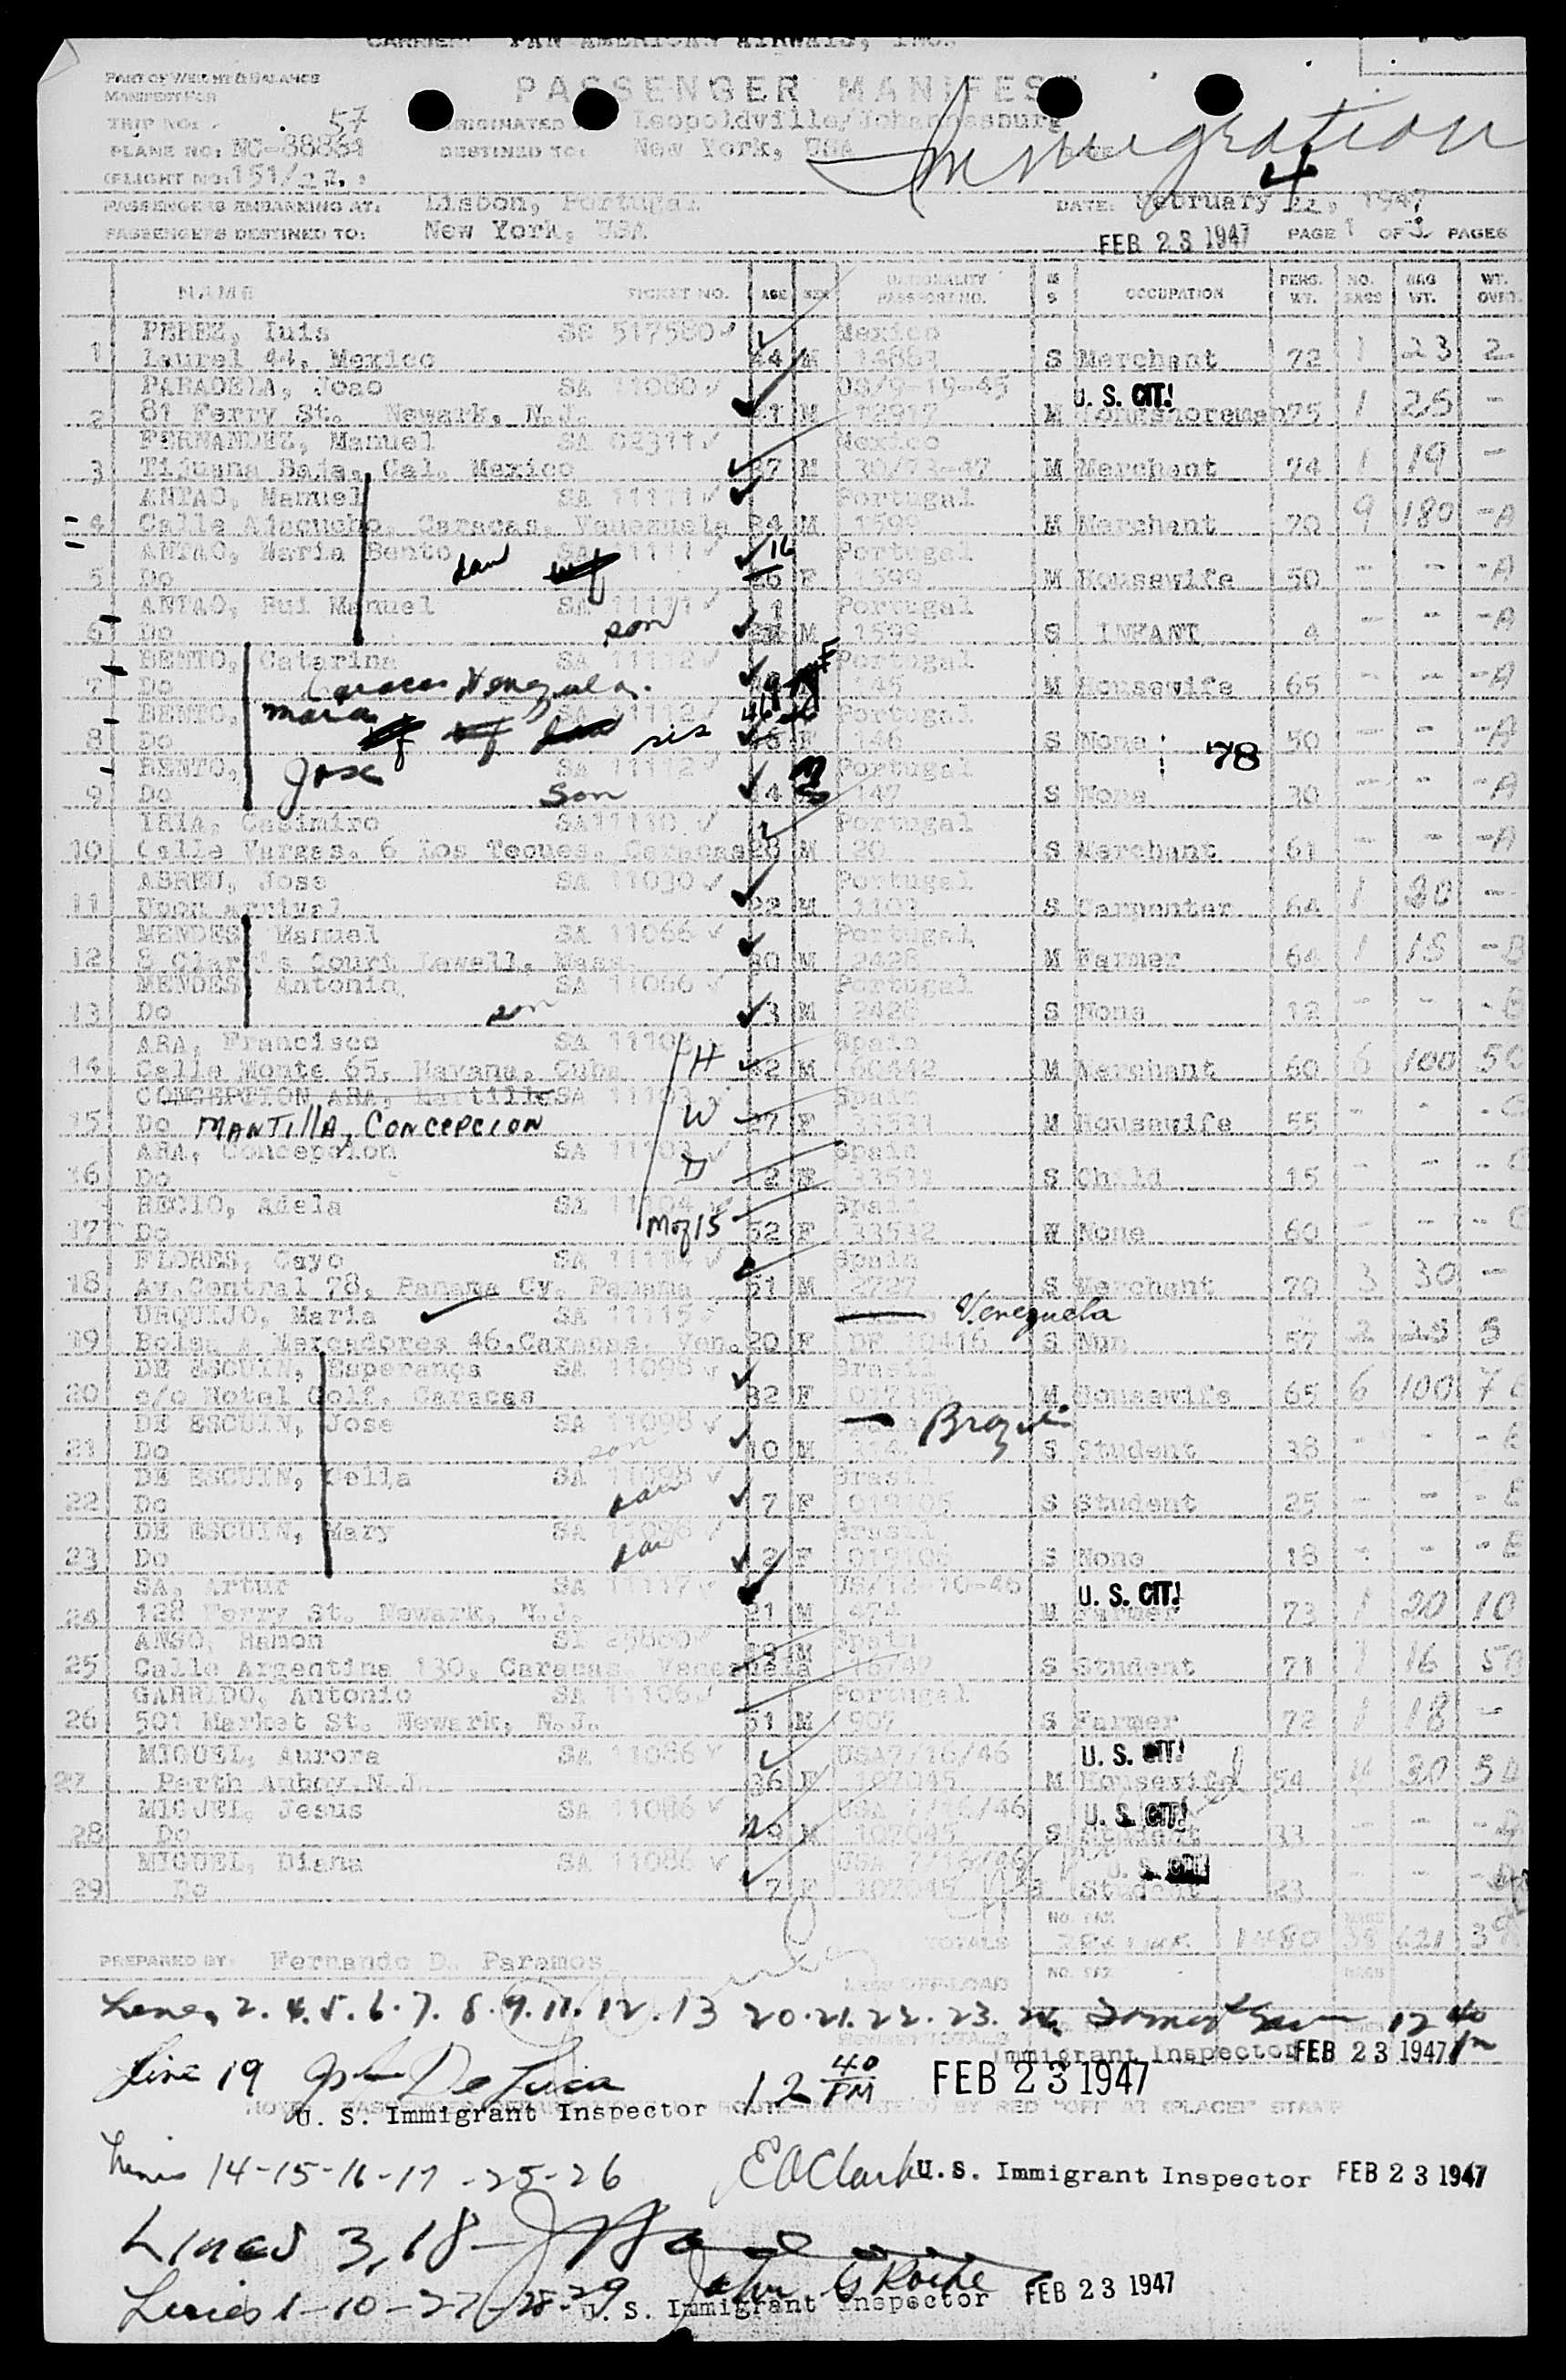 CARRIER: PAN AMERICAN AIRWAYS, INC.
PART OF WEIGHT & BALANCE
MANIFEST FOR
PASSENGER MANIFEST
TRIP NO: 57
ORIGINATED Leopoldville/Johannesburg
PLANE NO: NC-88881
DESTINED TO: New York, USA
Immigration
(FLIGHT NO: 151/22
4
PASSENGERS EMBARKING AT: Lisbon, Portugal
DATE: February 22, 1947
PASSENGERS DESTINED TO: New York, USA
FEB 23 1947
PAGE 1 OF 3 PAGES
NAME TICKET NO. AGE SEX NATIONALITY PASSPORT NO. M S OCCUPATION PERS. WT. NO. BAGS BAG WT. WT. OVER.
PEREZ, Luis Mexico
1 Laurel 44, Mexico 44 M 14863 S Merchant 72 1 23 2
PARADELA, Joao SA 11080 US/9-19-45 U. S. CIT.
2 81 Ferry St. Newark, N.J. M 12917 M Longshoreman 75 1 25 -
FERNANDEZ, Manuel SA 02311 Mexico
3 Tijuana Baja, Cal. Mexico 37 M M Merchant 74 1 19 -
ANTAO, Manuel SA 11111 Portugal
4 Calle Ayacucho, Caracas, Venezuela 34 M 1599 M Merchant 70 9 180 -A
ANTAO, Maria Bento SA 11111 Portugal
5 Do F 1599 M Housewife 50 - - -A
ANTAO, Rui Manuel SA 11111 1 Portugal
6 Do son M 1599 S INFANT 4 - - -A
BENTO, Catarina SA 11112 Portugal
7 Do Caracas, Venezuela. 145 M Housewife 65 - - -A
BENTO, Maria SA 11112 Portugal
8 Do sis F 146 S None 78 50 - - -A
BENTO, Jose SA 11112 M Portugal
9 Do son 14 147 S None 30 - - -A
IRIA, Casimiro SA11110 Portugal
10 Calle Vargas, 6 Los Teques, Caracas 28 M 20 S Merchant 61 - - -A
ABREU, Jose SA 11030 Portugal
11 Upon arrival 22 M 1103 S Carpenter 64 1 20 -
MENDES, Manuel SA 11066 Portugal
12 8 Clark's Court Lowell, Mass. M 2428 M Farmer 64 1 18 -B
MENDES, Antonio SA 11066 Portugal
13 Do son 3 M 2428 S None 12 - - -B
ARA, Francisco SA 11103 Spain
14 Calle Monte 65, Havana, Cuba H 32 M 60442 M Merchant 60 6 100 5C
CONCEPTION ARA, SA 11103 Spain
15 Do MANTILLA, CONCEPCION W 27 F 33531 M Housewife 55 - - -C
ARA, Concepcion SA 11103 Spain
16 Do D 2 F 33531 S Child 15 - - -C
RECIO, Adela SA 11104 Spain
17 Do M of 15 52 F 33532 W None 60 - - -C
FLORES, Cayo Spain
18 Av.Central 78, Panama Cy. Panama 51 M 2727 S Merchant 70 3 30 -
URQUIJO, Maria SA 11115 Venezuela
19 Bolsa a Mercadores 46,Caracas, Ven. 20 F DP 10416 S Nun 57 2 25 5
DE ESCUIN, Esperança SA 11098 Brasil
20 c/o Hotel Golf, Caracas 32 F M Housewife 65 6 100 7E
DE ESCUIN, Jose SA 11098 Brazil
21 Do son 10 M S Student 38 - - -E
DE ESCUIN, Celia SA 11098 Brasil
22 Do dau 7 F 019105 S Student 25 - - -E
DE ESCUIN, Mary SA 11098 Brasil
23 Do dau 2 F 019106 S None 18 - - -E
SA, Artur SA 11117 U. S. CIT.
24 128 Ferry St. Newark, N.J. M 474 M Farmer 73 1 20 10
ANSO, Ramon Spain
25 Calle Argentina 130, Caracas, Venezuela M S Student 71 1 16 5D
GARRIDO, Antonio SA 11106 Portugal
26 501 Market St. Newark, N.J. 51 M 907 S Farmer 72 1 18 -
MIGUEL, Aurora SA 11086 USA7/16/46 U. S. CIT.
27 Perth Amboy, N.J. 36 F 107045 M Housewife 54 4 30 5D
MIGUEL, Jesus SA 11086 USA 7/16/46 U. S. CIT.
28 Do M 107045 S Student 33 - -
MIGUEL, Diana SA 11086 USA 7/16/46
29 Do 7 F 107045 S Student 23 - -
PREPARED BY: Fernando D. Paramos
TOTALS NO. PAX 1480 38 621 39
LESS OFF-LOAD NO. PAX BAGS
Lines 2.4.5.6.7.8.9.11.12.13 20.21.22.23.24. 12 40 Pm
Immigrant Inspector FEB 23 1947
Line 19 John De Luca 12 40 PM FEB 23 1947
U. S. Immigrant Inspector
BY RED "OFF AT (PLACE)" STAMP
Lines 14-15-16-17-25-26 E O Clark U. S. Immigrant Inspector FEB 23 1947
Lines 3, 18 -
Lines 1-10-27-28-29 John G Roche
U. S. Immigrant Inspector FEB 23 1947